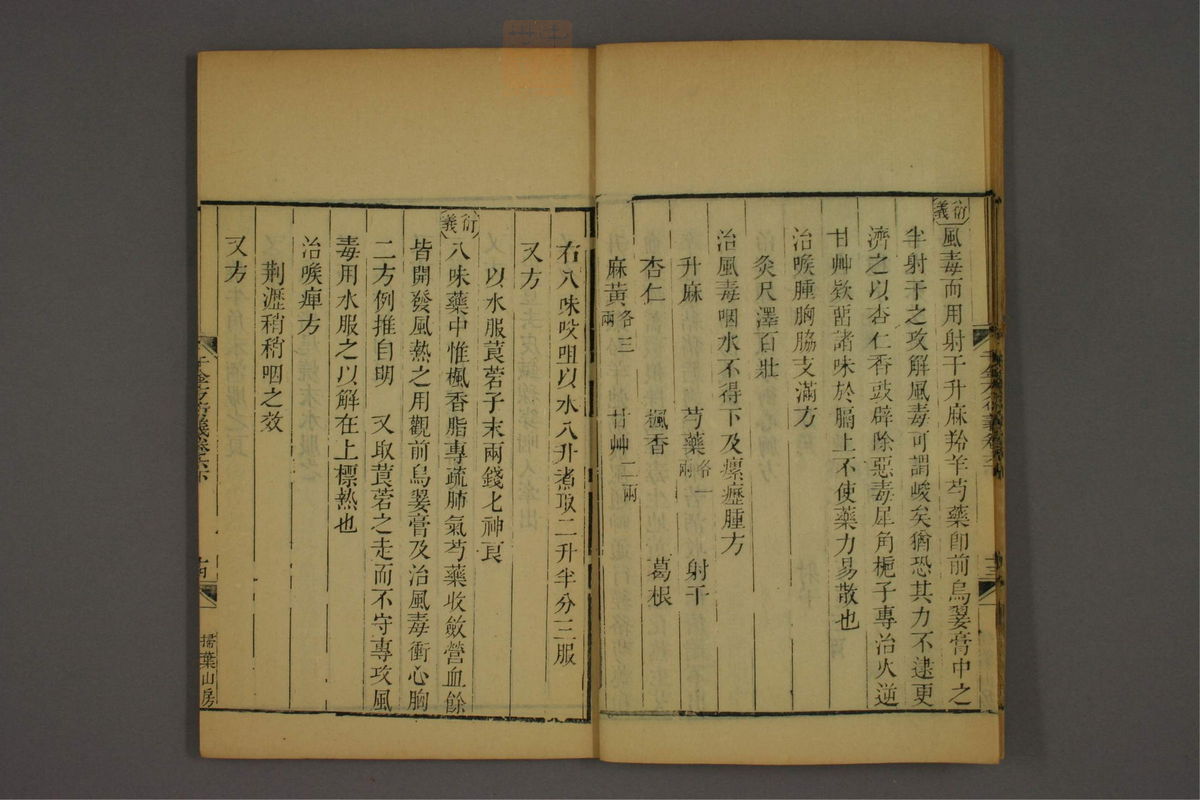 衍義
風毒而用射干升麻羚羊芍藥卽前烏翣膏中之
半射干之攻解風毒可謂峻矣猶恐其力不逮更
濟之以杏仁香豉辟除惡毒犀角梔子專治火逆
甘艸欵諸味於膈上不使藥力易散也
治喉腫胸脇支滿方
灸尺澤百壯
治風毒咽水不得下及瘰癧腫方
升麻 芍藥各一兩 射干
杏仁 楓香 葛根
麻黃各三兩 甘艸二兩
右八味㕮咀以水八升煮取二升半分三服
又方
以水服莨菪子末兩錢七神良
衍義
八味藥中惟楓香脂專疏肺氣芍藥收斂營血餘
皆開發風熱之用觀前烏翣膏及治風毒衝心胸
二方例推自明 又取莨菪之走而不守專攻風
毒用水服之以解在上標熱也
治喉痺方
荆瀝稍稍咽之效
又方
千金方衍義卷六下
十四
掃葉山房